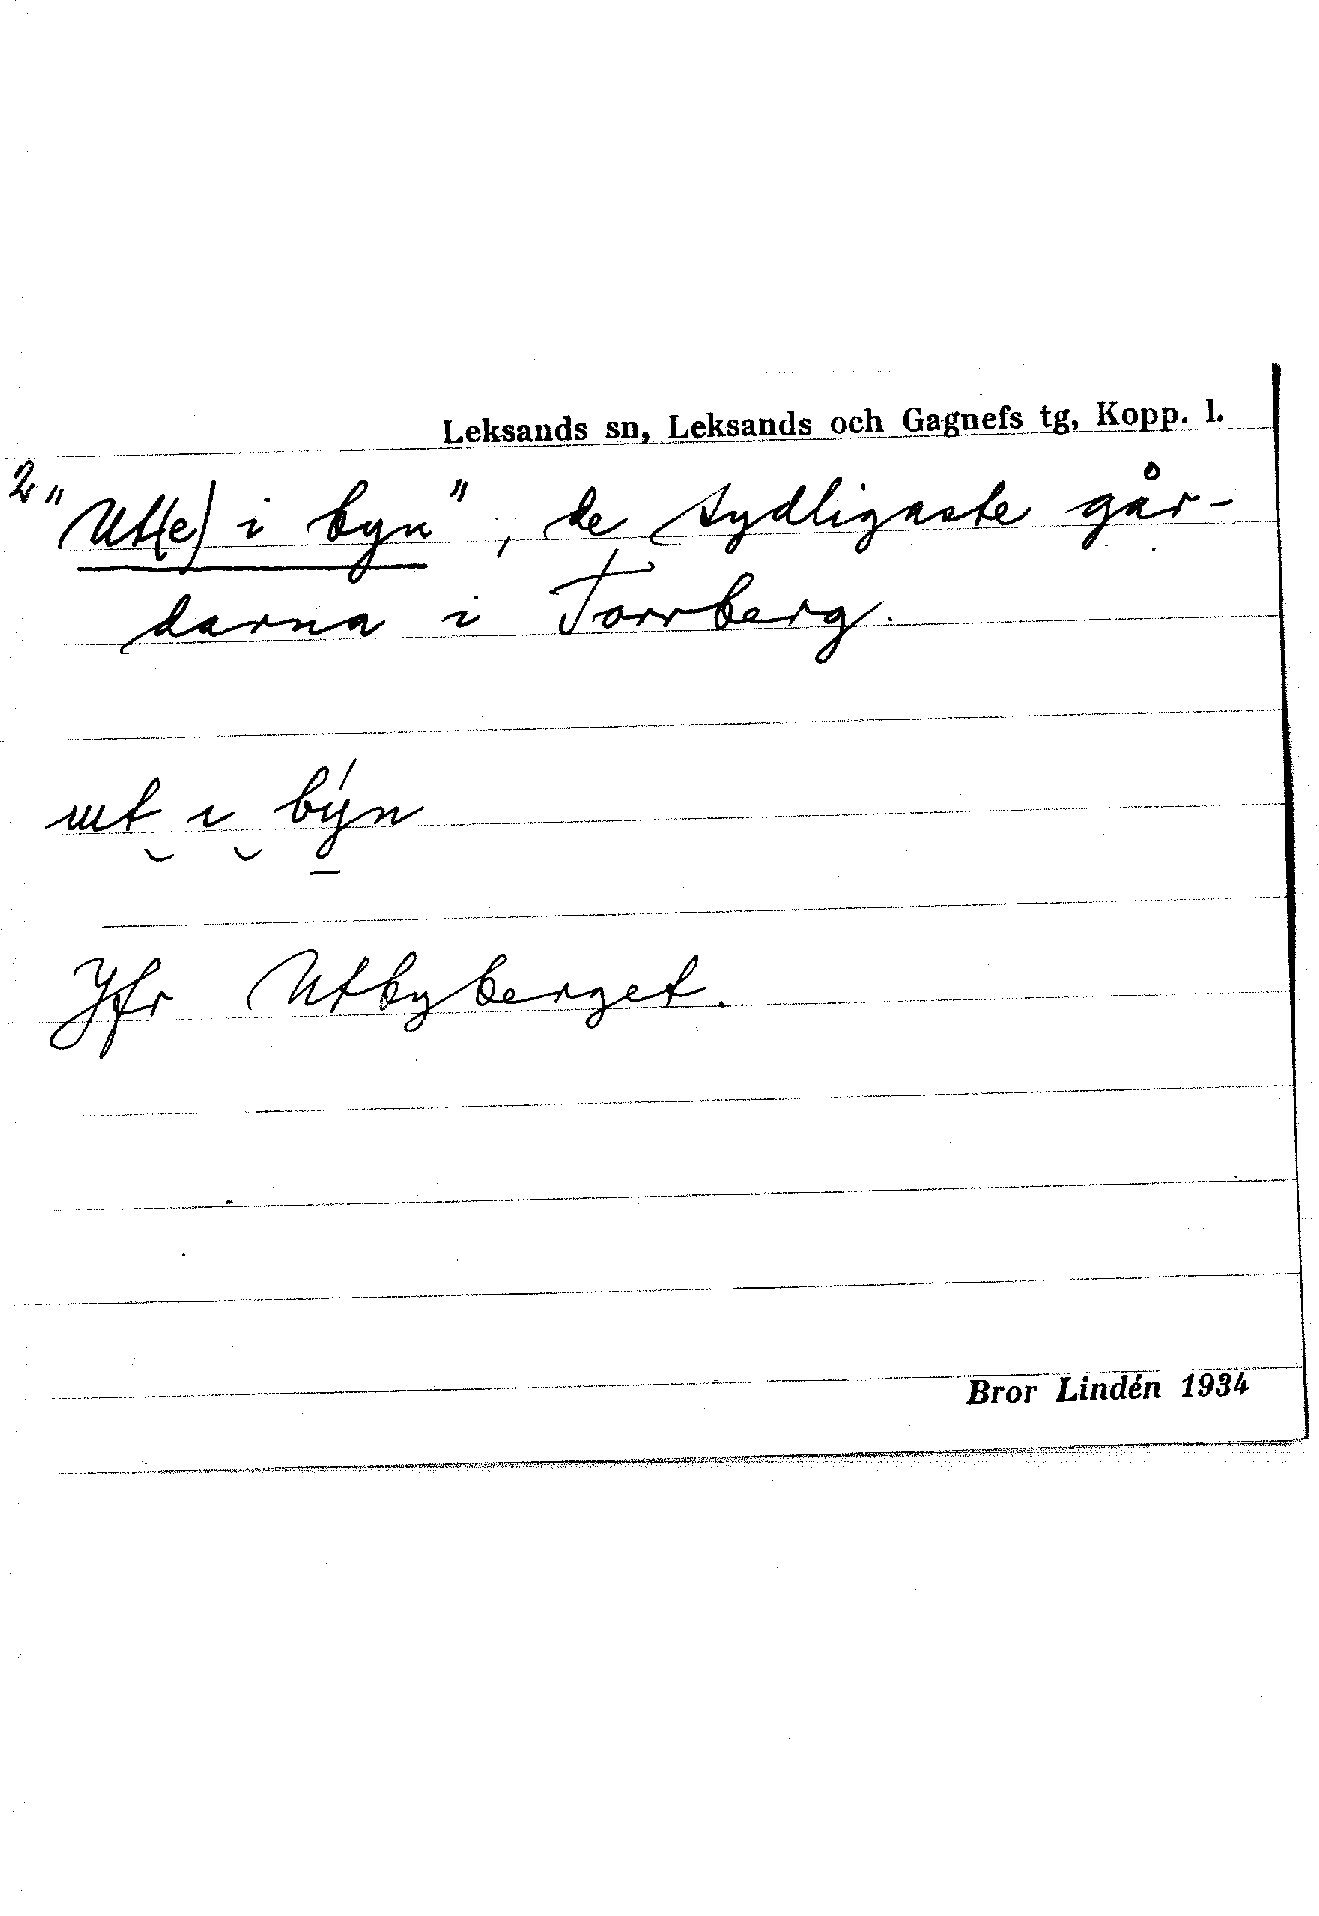 Leksands sn, Leksands och Gagnefs tg, Kopp. l.
2 "Ut(e) i byn", de sydligaste går-
darna i Torrberg.
ut i býn
Jfr Utbyberget.
Bror Lindén 1934